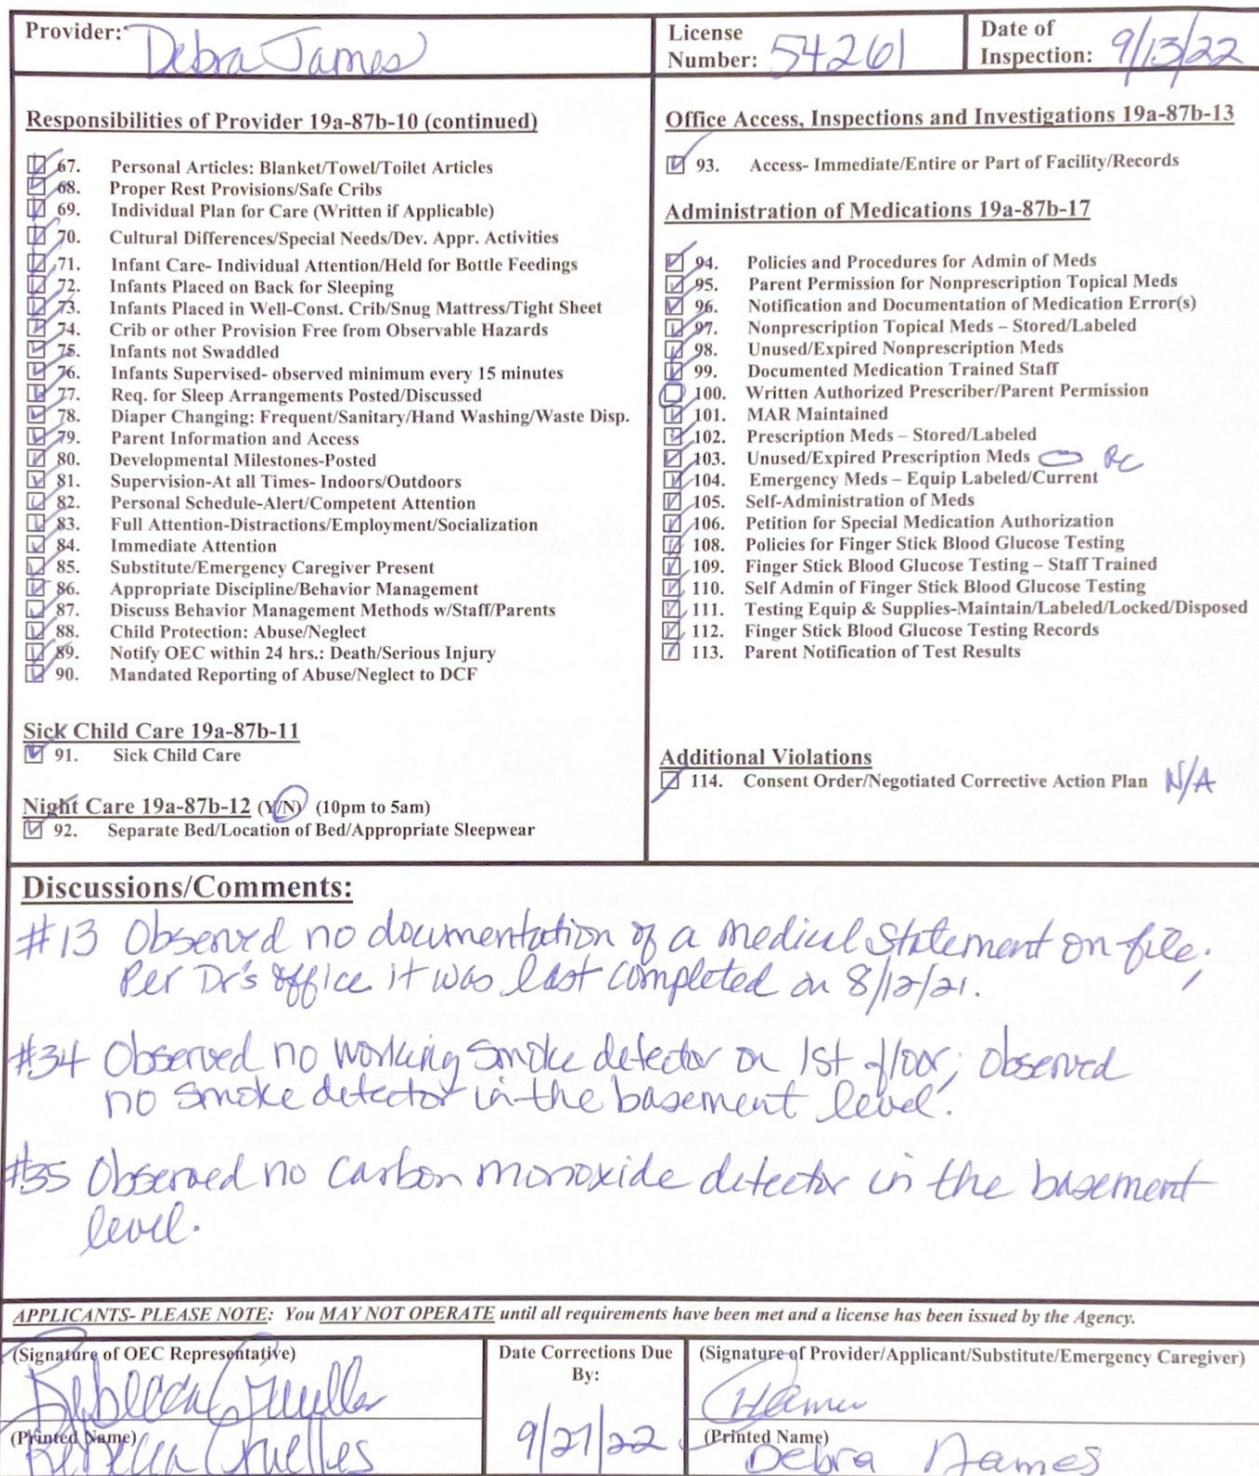 Provider: Debra James
License Number: 54261
Date of Inspection: 9/13/22
Responsibilities of Provider 19a-87b-10 (continued)
67. Personal Articles: Blanket/Towel/Toilet Articles
68. Proper Rest Provisions/Safe Cribs
69. Individual Plan for Care (Written if Applicable)
70. Cultural Differences/Special Needs/Dev. Appr. Activities
71. Infant Care- Individual Attention/Held for Bottle Feedings
72. Infants Placed on Back for Sleeping
73. Infants Placed in Well-Const. Crib/Snug Mattress/Tight Sheet
74. Crib or other Provision Free from Observable Hazards
75. Infants not Swaddled
76. Infants Supervised- observed minimum every 15 minutes
77. Req. for Sleep Arrangements Posted/Discussed
78. Diaper Changing: Frequent/Sanitary/Hand Washing/Waste Disp.
79. Parent Information and Access
80. Developmental Milestones-Posted
81. Supervision-At all Times- Indoors/Outdoors
82. Personal Schedule-Alert/Competent Attention
83. Full Attention-Distractions/Employment/Socialization
84. Immediate Attention
85. Substitute/Emergency Caregiver Present
86. Appropriate Discipline/Behavior Management
87. Discuss Behavior Management Methods w/Staff/Parents
88. Child Protection: Abuse/Neglect
89. Notify OEC within 24 hrs.: Death/Serious Injury
90. Mandated Reporting of Abuse/Neglect to DCF
Sick Child Care 19a-87b-11
91. Sick Child Care
Night Care 19a-87b-12 (Y/N) (10pm to 5am)
92. Separate Bed/Location of Bed/Appropriate Sleepwear
Office Access, Inspections and Investigations 19a-87b-13
93. Access- Immediate/Entire or Part of Facility/Records
Administration of Medications 19a-87b-17
94. Policies and Procedures for Admin of Meds
95. Parent Permission for Nonprescription Topical Meds
96. Notification and Documentation of Medication Error(s)
97. Nonprescription Topical Meds – Stored/Labeled
98. Unused/Expired Nonprescription Meds
99. Documented Medication Trained Staff
100. Written Authorized Prescriber/Parent Permission
101. MAR Maintained
102. Prescription Meds – Stored/Labeled
103. Unused/Expired Prescription Meds RC
104. Emergency Meds – Equip Labeled/Current
105. Self-Administration of Meds
106. Petition for Special Medication Authorization
108. Policies for Finger Stick Blood Glucose Testing
109. Finger Stick Blood Glucose Testing – Staff Trained
110. Self Admin of Finger Stick Blood Glucose Testing
111. Testing Equip & Supplies-Maintain/Labeled/Locked/Disposed
112. Finger Stick Blood Glucose Testing Records
113. Parent Notification of Test Results
Additional Violations
114. Consent Order/Negotiated Corrective Action Plan N/A
Discussions/Comments:
#13 Observed no documentation of a medical statement on file;
Per Dr's office it was last completed on 8/12/21.
#34 Observed no working smoke detector on 1st floor; Observed
no smoke detector in the basement level.
#35 Observed no carbon monoxide detector in the basement
level.
APPLICANTS- PLEASE NOTE: You MAY NOT OPERATE until all requirements have been met and a license has been issued by the Agency.
(Signature of OEC Representative)
(Printed Name) Rebecca
Date Corrections Due
By:
9/27/22
(Signature of Provider/Applicant/Substitute/Emergency Caregiver)
(Printed Name)
Debra James